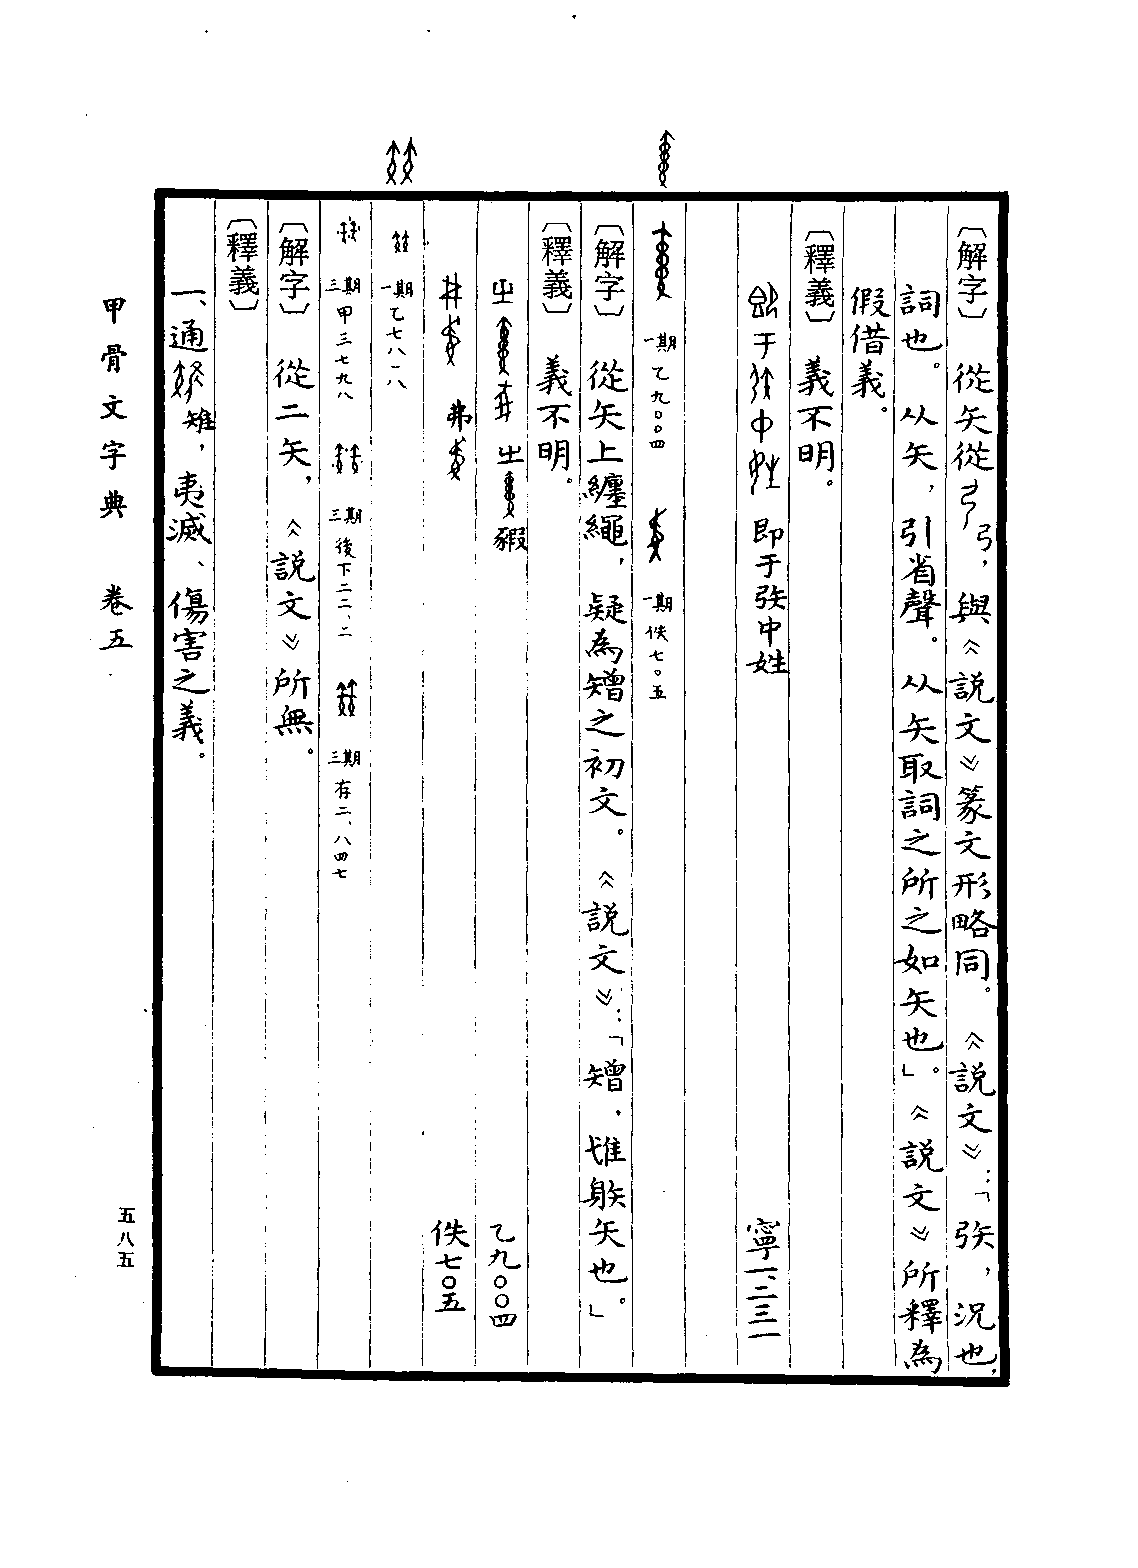 〔解字〕從矢從弓，與《説文》篆文形略同。《説文》：「矤，況也，
詞也。从矢，引省聲。从矢取詞之所之如矢也」。《説文》所釋為
假借義。
〔釋義〕義不明。
于中 即于矤中姓 寧一、二三一
一期 乙九〇〇四 一期 佚七〇五
〔解字〕從矢上纏繩，疑為矰之初文。《説文》：「矰，隿䠶矢也。」
〔釋義〕義不明。
豭 乙九〇〇四
弗 佚七〇五
一期 乙七八一八
三期 甲三七九八 三期 後下二二、二 三期 存二、八四七
〔解字〕從二矢，《説文》所無。
〔釋義〕
一、通雉，夷滅、傷害之義。
甲骨文字典 卷五
五八五